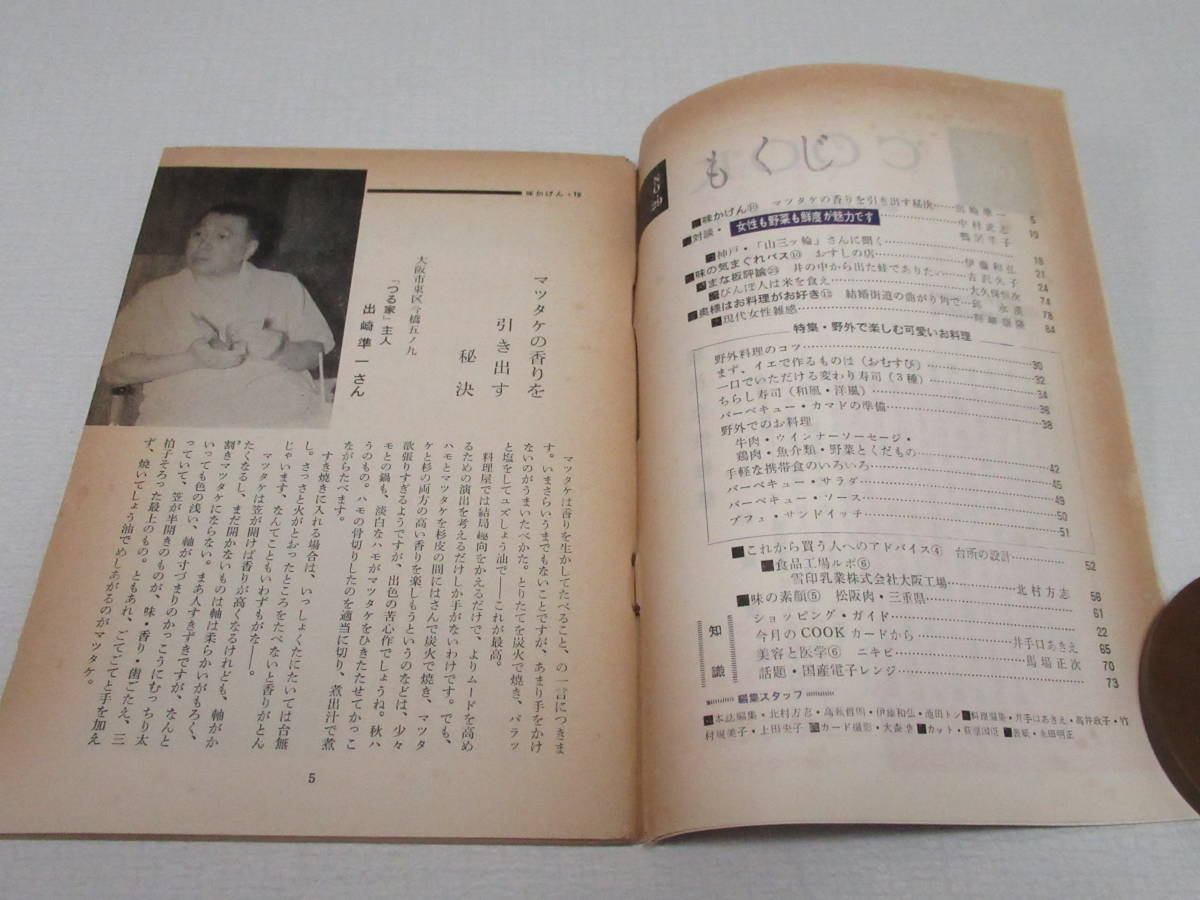 味かげん・19
マツタケの香りを
引き出す
秘決
大阪市東区今橋五ノ九
「つる家」主人
出崎準一さん
マツタケは香りを生かしてたべること、の一言につきま
す。いまさらいうまでもないことですが、あまり手をかけ
ないのがうまいたべかた。とりたてを炭火で焼き、パラッ
と塩をしてユズしょう油で――これが最高。
料理屋では結局趣向をかえるだけで、よりムードを高め
るための演出を考えるだけしか手がないわけです。でも、
ハモとマツタケを杉皮の間にはさんで炭火で焼き、マツタ
ケと杉の両方の高い香りを楽しもうというのなどは、少々
欲張りすぎるようですが、出色の苦心作でしょうね。秋ハ
モとの鍋も、淡白なハモがマツタケをひきたたせてかっこ
うのもの。ハモの骨切りしたのを適当に切り、煮出汁で煮
ながらたべます。
すき焼きに入れる場合は、いっしょくたにたいては台無
し。さっさと火がとおったところをたべないと香りがとん
じゃいます。なんてこともいわずもがな――。
マツタケは笠が開けば香りが高くなるけれども、軸がか
たくなるし、まだ開かないものは軸は柔らかいがもろく、
割きマツタケにならない。まあ人すきずきですが、なんと
いっても色の浅い、軸がすづまりのかっこうにむっちり太
っていて、笠が半開きのものが、味・香り・歯ごたえ、三
拍子そろった最上のもの。ともあれ、ごてごてと手を加え
ず、焼いてしょう油でめしあがるのがマツタケ。
5
もくじ
■味かげん⑲ マツタケの香りを引き出す秘決……出崎準一 5
■対談・女性も野菜も鮮度が魅力です 中村武志 10
■神戸・「山三ッ輪」さんに聞く 18
■味の気まぐれバス⑩ おすしの店 伊藤和弘 21
■主な板評論㉓ 井の中から出た蛙でありたい 吉沢久子 24
■びんぼ人は米を食え 大久保恒次 74
■奥様はお料理がお好き⑬ 結婚街道の曲がり角で 78
■現代女性雑感 84
特集・野外で楽しむ可愛いお料理
野外料理のコツ 30
まず、イエで作るものは(おむすび) 32
一口でいただける変わり寿司(3種) 34
ちらし寿司(和風・洋風) 36
バーベキュー・カマドの準備 38
野外でのお料理
牛肉・ウインナーソーセージ・
鶏肉・魚介類・野菜とくだもの 42
手軽な携帯食のいろいろ 45
バーベキュー・サラダ 49
バーベキュー・ソース 50
ブフュ・サンドイッチ 51
■これから買う人へのアドバイス④ 台所の設計 52
■食品工場ルポ⑥
雪印乳業株式会社大阪工場 北村方志 58
■味の素顔⑤ 松阪肉・三重県 61
知識
ショッピング・ガイド 22
今月のCOOKカードから 井手口あきえ 65
美容と医学⑥ ニキビ 馬場正次 70
話題・国産電子レンジ 73
編集スタッフ
■本誌編集・北村方志・高萩哲明・伊藤和弘・池田トシ■料理編集・井手口あきえ・高井政子・竹
村規美子・上田央子■カード撮影・大森■カット・荻原国臣■表紙・永田明正